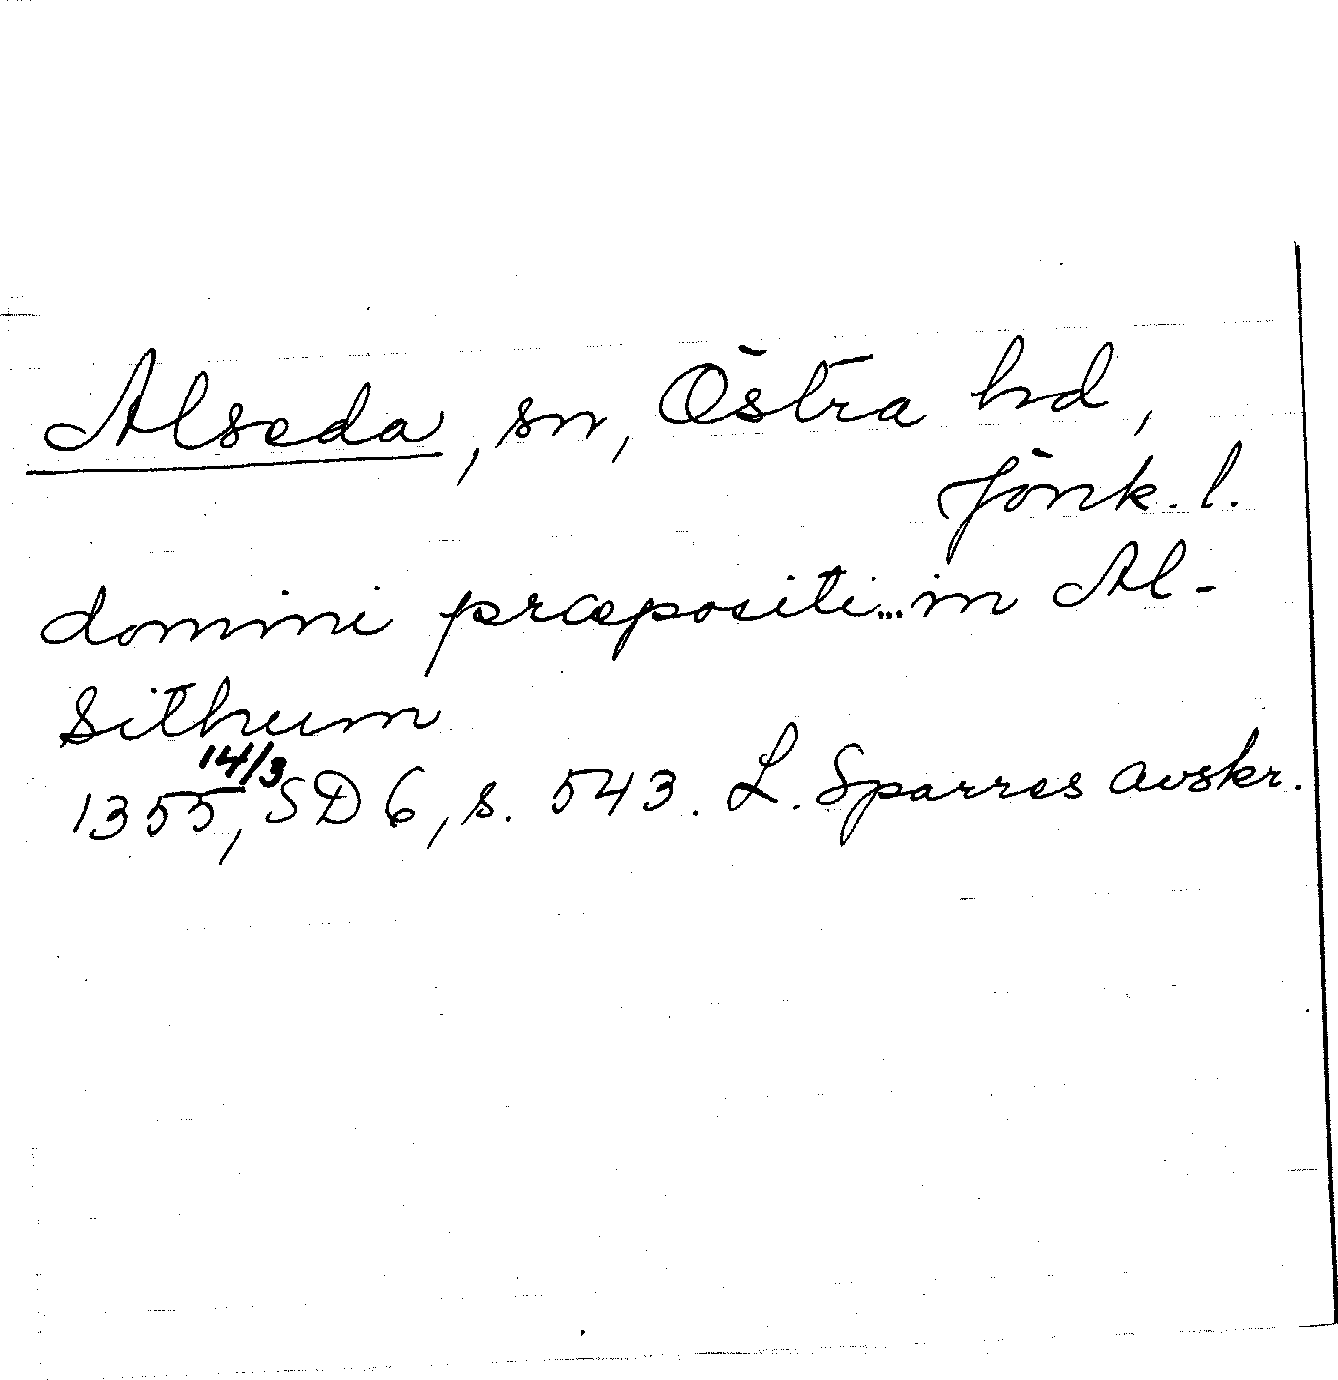 Alseda, sn, Östra hd,
Jönk. l.
domini præpositi... in Al-
sithum
14/3
1355, SD 6, s. 543. L. Sparres avskr.